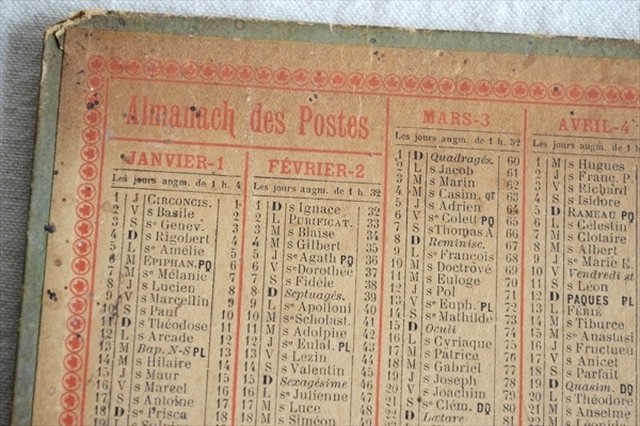 Almanach des Postes
JANVIER-1
Les jours augm. de 1 h. 4
1 J CIRCONCIS. 1
2 V s Basile 2
3 S se Genev. 3
4 D s Rigobert 4
5 L se Amélie 5
6 M EPIPHAN. PQ 6
7 M se Mélanie 7
8 J s Lucien 8
9 V s Marcellin 9
10 S s Paul 10
11 D s Théodose 11
12 L s Arcade 12
13 M Bap. N-S PL 13
14 M s Hilaire 14
15 J s Maur 15
16 V s Marcel 16
17 S s Antoine 17
18 D se Prisca 18
FÉVRIER-2
Les jours augm. de 1 h. 32
1 D s Ignace 32
2 L PURIFICAT. 33
3 M s Blaise 34
4 M s Gilbert 35
5 J se Agath PQ 36
6 V se Dorothée 37
7 S s Fidèle 38
8 D Septuagés. 39
9 L se Apolloni 40
10 M se Scholast. 41
11 M s Adolphe 42
12 J se Eulal. PL 43
13 V s Lezin 44
14 S s Valentin 45
15 D Sexagésime 46
16 L se Julienne 47
17 M s Luce 48
18 M s Siméon
MARS-3
Les jours augm. de 1 h. 52
1 D Quadragés. 60
2 L s Jacob 61
3 M s Marin 62
4 M s Casim. QT 63
5 J s Adrien 64
6 V se Colett PQ 65
7 S s Thomas A 66
8 D Reminisc. 67
9 L se François 68
10 M s Doctrové 69
11 M s Euloge 70
12 J s Pol 71
13 V se Euph. PL 72
14 S se Mathilde 73
15 D Oculi 74
16 L s Cyriaque 75
17 M s Patrice 76
18 M s Gabriel 77
19 J s Joseph 78
20 V s Joachim 79
21 S s Clém. DQ 80
22 D Lætare 81
AVRIL-4
Les jours augm. de 1 h
1 M s Hugues
2 J s Franç. P
3 V s Richard
4 S s Isidore
5 D RAMEAU PQ
6 L s Celestin
7 M s Clotaire
8 M s Albert
9 J se Marie E.
10 V Vendredi st
11 S s Léon
12 D PAQUES PL
13 L FÉRIÉ
14 M s Tiburce
15 M s Anastasi
16 J s Fructueu
17 V s Anicet
18 S s Parfait
19 D Quasim. DQ
20 L s Théodore
21 M s Anselme
22 M s Léonide